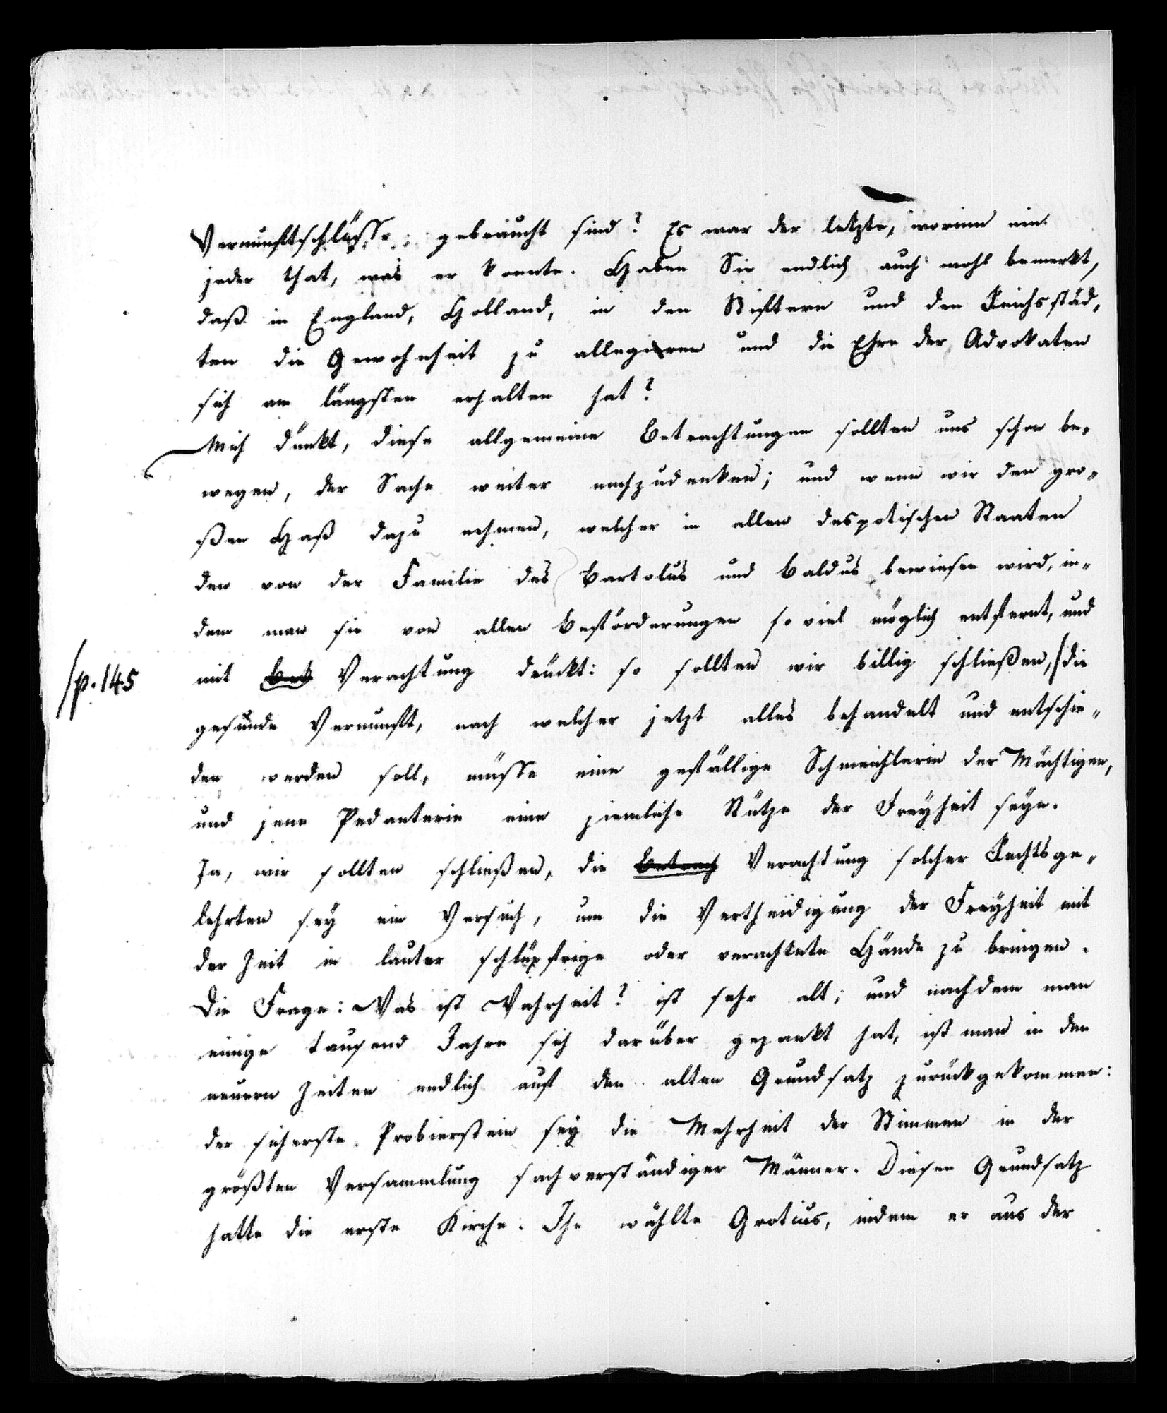 Vernunftschlüsse gebraucht sind? Es war der letzte, worinn ein
jeder that, was er konnte. Haben Sie endlich auch wohl bemerkt,
daß in England, Holland, in den Stiftern und den Reichsstäd,
ten die Gewohnheit zu allegiren und die Ehre der Advokaten
sich am längsten erhalten hat?
Mich dünkt, diese allgemeine Betrachtungen sollten uns schon be,
wegen, der Sache weiter nachzudenken; und wenn wir den gro,
ßen Haß dazu nehmen, welcher in allen despotischen Staaten
den von der Familie des Bartolus und Baldus bewiesen wird, in,
dem man sie von allen Beförderungen so viel möglich entfernt, und
mit Verachtung drückt: so sollten wir billig schließen, die
/p. 145
gesunde Vernunft, nach welcher jetzt alles behandelt und entschie,
den werden soll, müsse eine gefällige Schmeichlerin der Mächtigen,
und jene Pedanterie eine ziemliche Stütze der Freyheit seyn.
Ja, wir sollten schließen, die Betrach Verachtung solcher Rechtsge,
lehrten sey ein Versuch, um die Vertheidigung der Freyheit mit
der Zeit in lauter schlüpfrige oder verachtete Hände zu bringen.
Die Frage: Was ist Wahrheit? ist sehr alt; und nachdem man
einige tausend Jahre sich darüber gezankt hat, ist man in den
neuern Zeiten endlich auf den alten Grundsatz zurückgekommen:
der sicherste Probierstein sey die Mehrheit der Stimmen in der
größten Versammlung sachverständiger Männer. Diesen Grundsatz
hatte die erste Kirche. Ihn wählte Grotius, indem er aus der